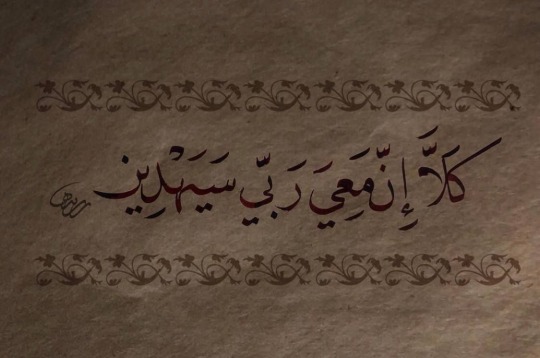 كَلَّا إِنَّ مَعِيَ رَبِّي سَيَهْدِينِ